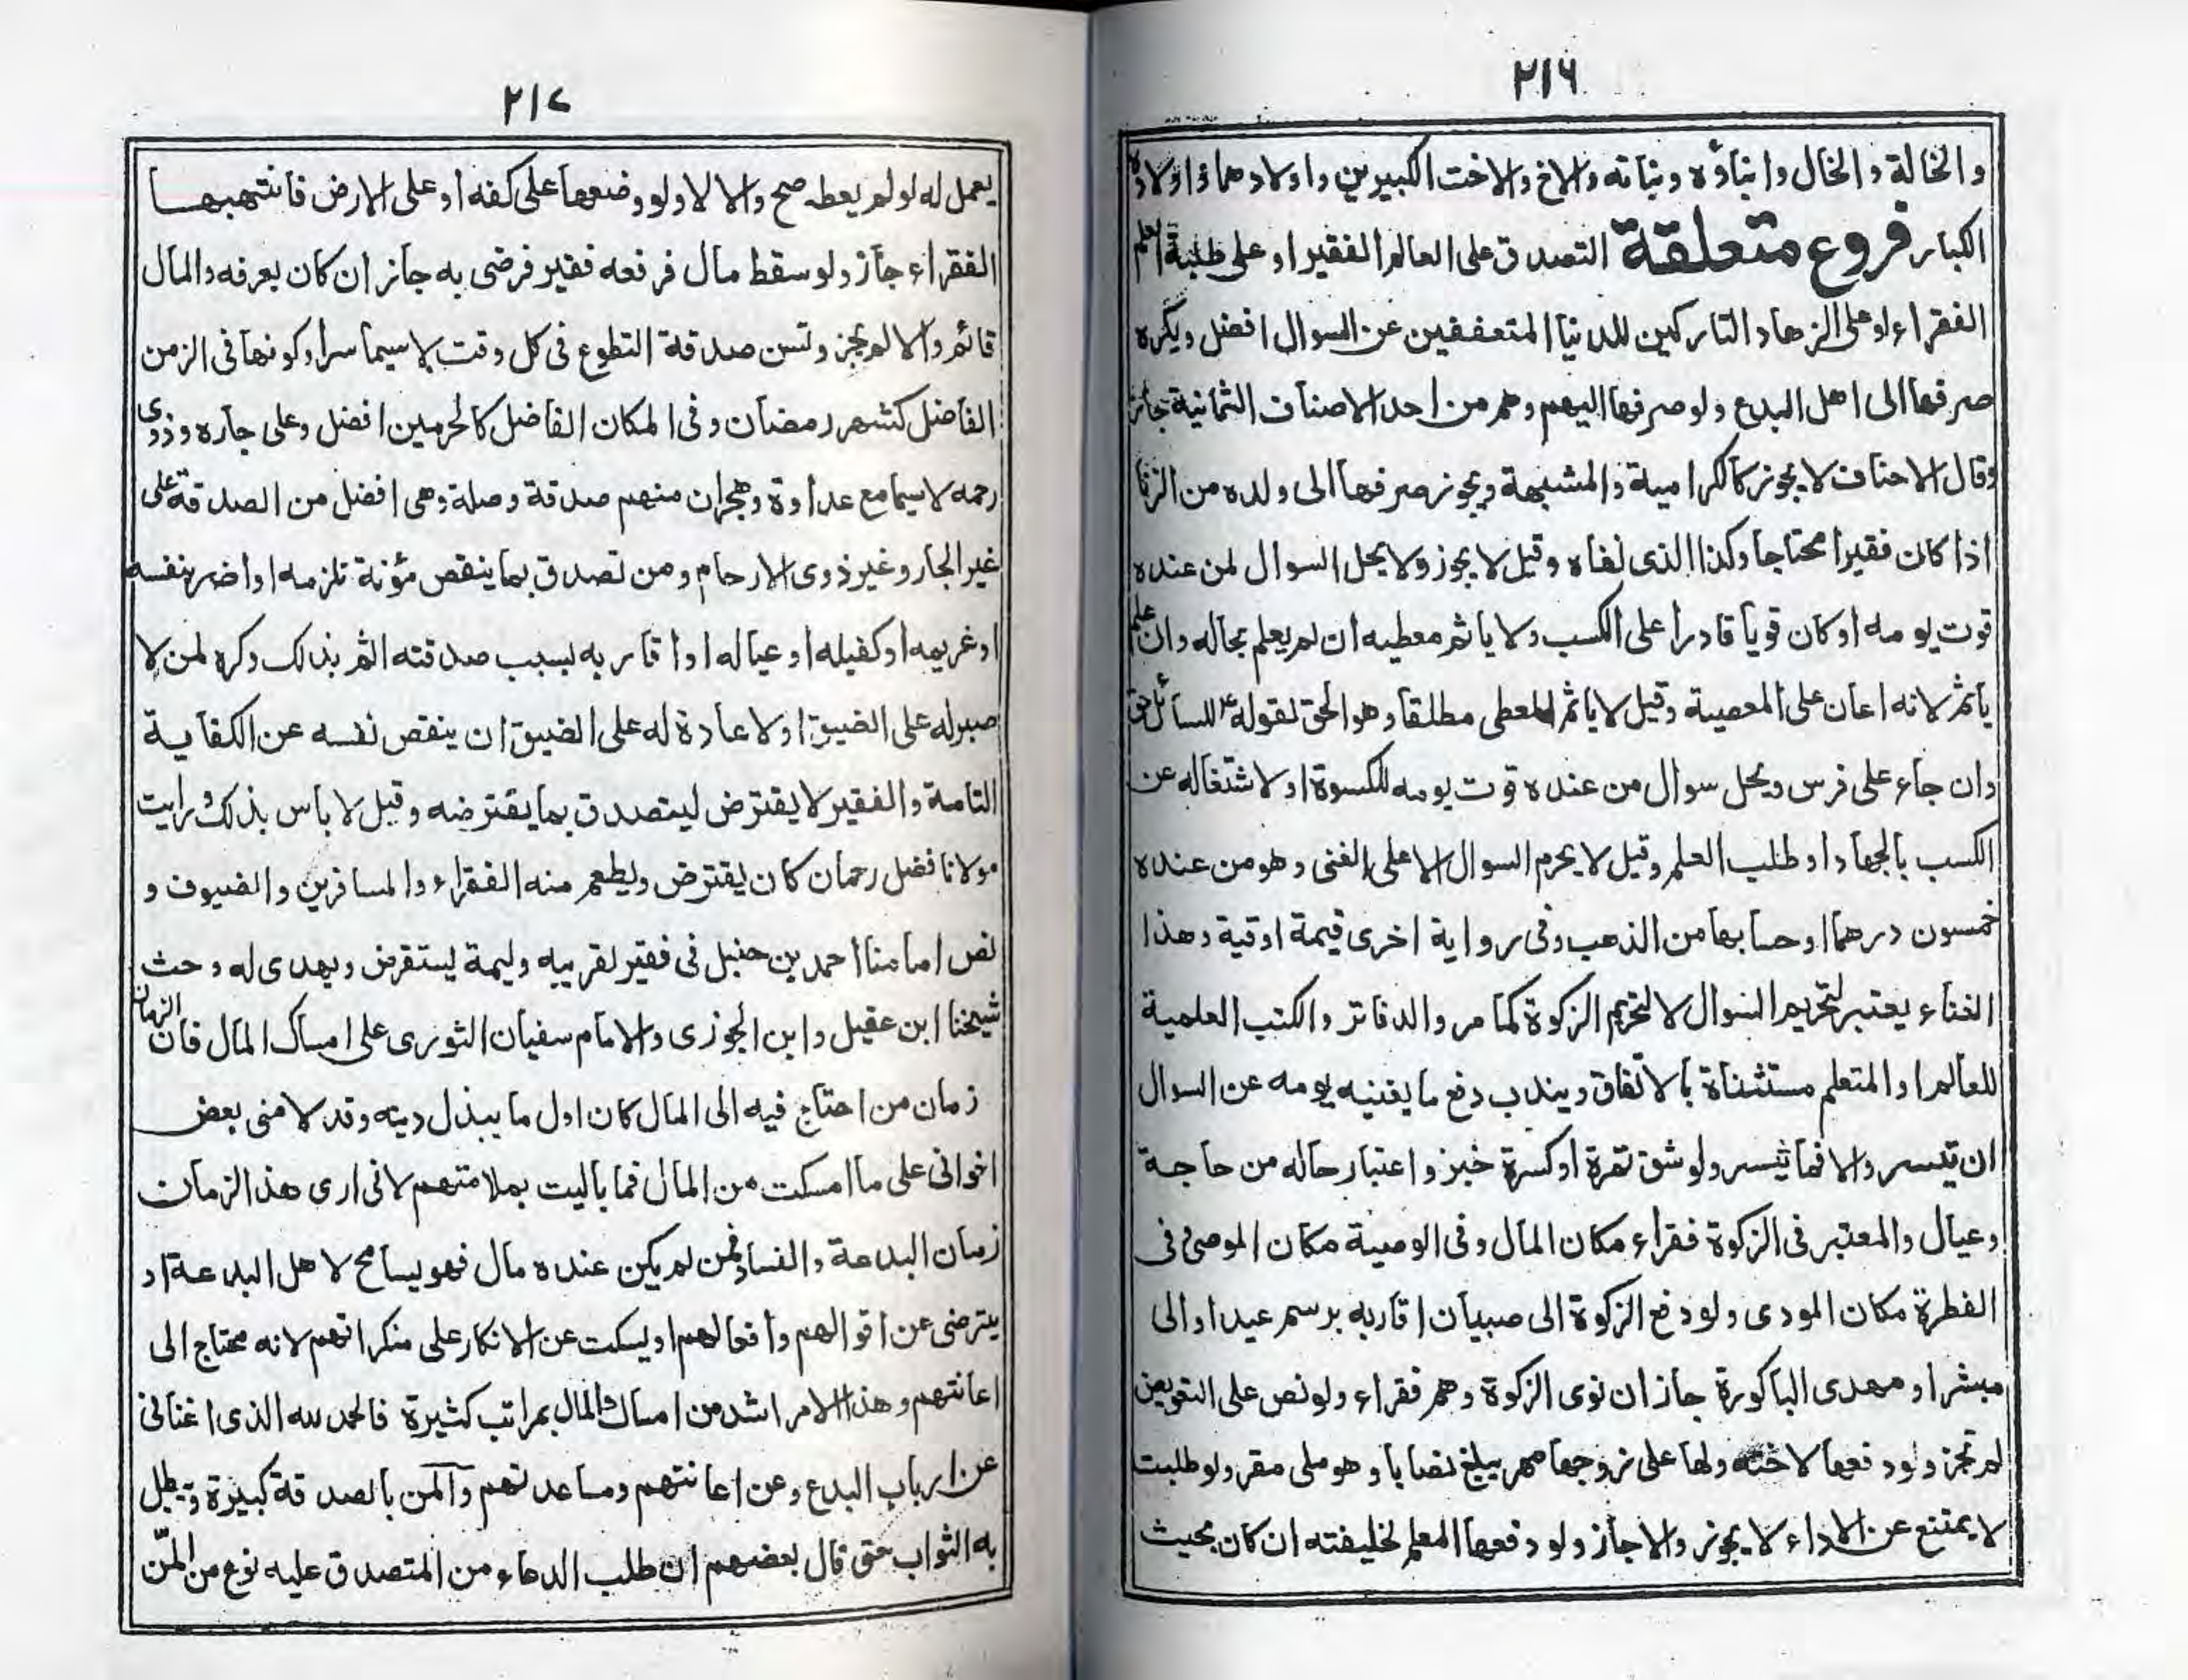 ٢١٦
والخالة والخال وابناؤه وبناته والاخ والاخت الكبيرين واولادهما واولاده
الكبار فروع متعلقة التصدق على العالم الفقير او على طلبة العلم
الفقراء او على الزهاد التاركين للدنيا المتعففين عن السوال افضل ويكره
صرفها الى اهل البدع ولو صرفها اليهم وهم من احد الاصناف الثمانية جاز
وقال الاحناف لا يجوز كالكرامية والمشبهة ويجوز صرفها الى ولده من الزنا
اذا كان فقيرا محتاجا وكذا الذى نفاه وقيل لا يجوز ولا يحل السوال لمن عنده
قوت يومه او كان قويا قادرا على الكسب ولا ياثم معطيه ان لم يعلم بحاله وان علم
ياثم لانه اعان على المعصية وقيل لا ياثم المعطى مطلقا وهو الحق لقوله ع للسائل حق
وان جاء على فرس ويحل سوال من عنده قوت يومه للكسوة او لاشتغاله عن
الكسب بالجهاد او طلب العلم وقيل لا يحرم السوال الا على الغنى وهو من عنده
خمسون درهما او حسابها من الذهب وفى رواية اخرى قيمة اوقية وهذا
الغناء يعتبر لتحريم السوال لا لتحريم الزكوة كما مر والدفاتر والكتب العلمية
للعالم او المتعلم مستثناة بالاتفاق ويندب دفع ما يغنيه يومه عن السوال
ان تيسر والا فما تيسر ولو شق تمرة او كسرة خبز واعتبار حاله من حاجة
وعيال والمعتبر فى الزكوة فقراء مكان المال وفى الوصية مكان الموصى وفى
الفطرة مكان المودى ولو دفع الزكوة الى صبيان اقاربه برسم عيد او الى
مبشر او مهدى الباكورة جاز ان نوى الزكوة وهم فقراء ولو نص على التعويض
لم تجز ولو دفعها لاخته ولها على زوجها مهر يبلغ نصابا وهو ملى مقر ولو طلبت
لا يمتنع عن الاداء لا يجوز والا جاز ولو دفعها المعلم لخليفته ان كان بحيث
٢١٧
يعمل له لو لم يعطه صح والا لا ولو وضعها على كفه او على الارض فانتهبها
الفقراء جاز ولو سقط مال فرفعه فقير فرضى به جاز ان كان يعرفه والمال
قائم والا لم يجز وتسن صدقة التطوع فى كل وقت لا سيما سرا وكونها فى الزمن
الفاضل كشهر رمضان وفى المكان الفاضل كالحرمين افضل وعلى جاره وذوى
رحمه لا سيما مع عداوة وهجران منهم صدقة وصلة وهى افضل من الصدقة على
غير الجار وغير ذوى الارحام ومن تصدق بما ينقص مؤنة تلزمه او اضر بنفسه
او غريمه او كفيله او عياله او اقاربه بسبب صدقته اثم بذلك وكره لمن لا
صبر له على الضيق او لا عادة له على الضيق ان ينقص نفسه عن الكفاية
التامة والفقير لا يقترض ليتصدق بما يقترضه وقيل لا باس بذلك ورايت
مولانا فضل رحمان كان يقترض ويطعم منه الفقراء والمسافرين والضيوف و
نص امامنا احمد بن حنبل فى فقير لقريبه وليمة يستقرض ويهدى له وحث
شيخنا ابن عقيل وابن الجوزى والامام سفيان الثورى على امساك المال فان الزمان
زمان من احتاج فيه الى المال كان اول ما يبذل دينه وقد لامنى بعض
اخوانى على ما امسكت من المال فما باليت بملامتهم لانى ارى هذ الزمان
زمان البدعة والفساد فمن لم يكن عنده مال فهو يسامح لاهل البدعة او
يترضى عن اقوالهم وافعالهم او يسكت عن الانكار على منكراتهم لانه محتاج الى
اعانتهم وهذا الامر اشد من امساك المال بمراتب كثيرة فالحمد لله الذى اغنانى
عن ارباب البدع وعن اعانتهم ومساعدتهم والمن بالصدقة كبيرة ويبطل
به الثواب حتى قال بعضهم ان طلب الدعاء من المتصدق عليه نوع من المنّ